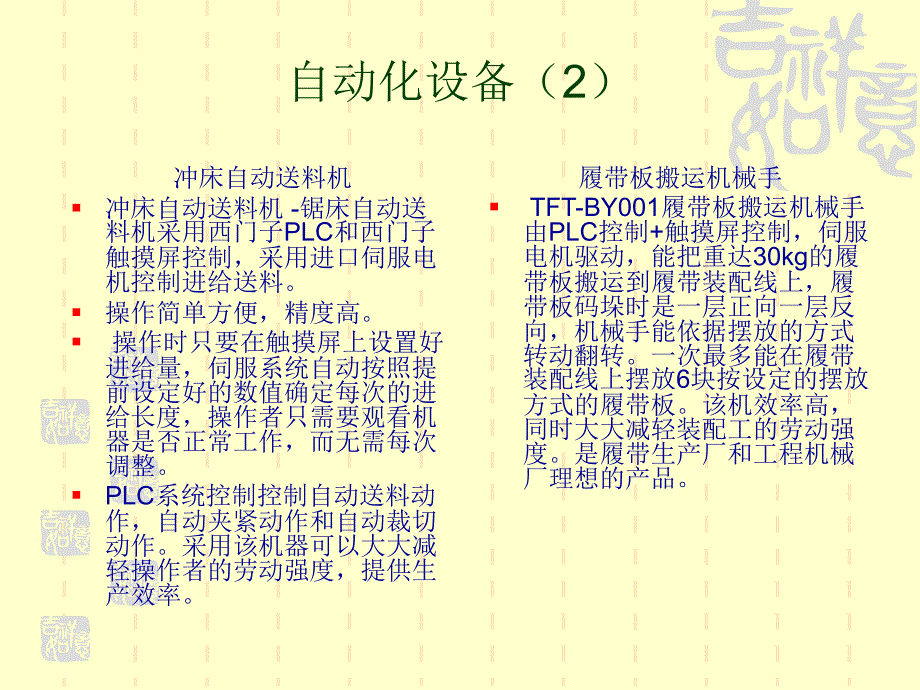 吉祥如意
自动化设备（2）
冲床自动送料机
冲床自动送料机 -锯床自动送
料机采用西门子PLC和西门子
触摸屏控制，采用进口伺服电
机控制进给送料。
操作简单方便，精度高。
操作时只要在触摸屏上设置好
进给量，伺服系统自动按照提
前设定好的数值确定每次的进
给长度，操作者只需要观看机
器是否正常工作，而无需每次
调整。
PLC系统控制控制自动送料动
作，自动夹紧动作和自动裁切
动作。采用该机器可以大大减
轻操作者的劳动强度，提供生
产效率。
履带板搬运机械手
TFT-BY001履带板搬运机械手
由PLC控制+触摸屏控制，伺服
电机驱动，能把重达30kg的履
带板搬运到履带装配线上，履
带板码垛时是一层正向一层反
向，机械手能依据摆放的方式
转动翻转。一次最多能在履带
装配线上摆放6块按设定的摆放
方式的履带板。该机效率高，
同时大大减轻装配工的劳动强
度。是履带生产厂和工程机械
厂理想的产品。
吉祥如意
吉祥如意
吉祥如意